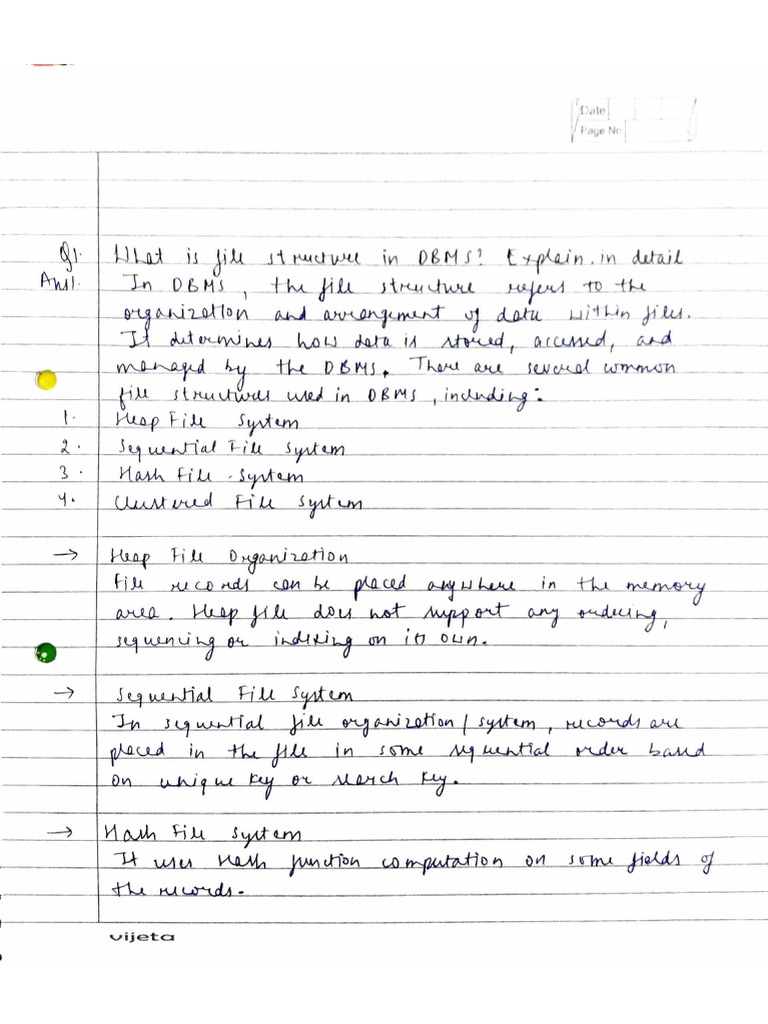 Date
Page No
Q1. What is file structure in DBMS? Explain in detail
Ans1. In DBMS, the file structure refers to the
organization and arrangement of data within files.
It determines how data is stored, accessed, and
managed by the DBMS. There are several common
file structures used in DBMS, including:
1. Heap File System
2. Sequential File System
3. Hash File System
4. Clustered File System
→ Heap File Organization
File records can be placed anywhere in the memory
area. Heap file does not support any ordering,
sequencing or indexing on its own.
→ Sequential File System
In sequential file organization/system, records are
placed in the file in some sequential order based
on unique key or search key.
→ Hash File System
It uses Hash function computation on some fields of
the records.
vijeta